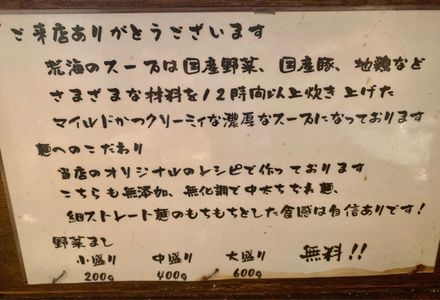 ご来店ありがとうございます
荒海のスープは国産野菜、国産豚、地鶏など
さまざまな材料を12時間以上炊き上げた
マイルドかつクリーミィな濃厚なスープになっております
麺へのこだわり
当店のオリジナルのレシピで作っております
こちらも無添加、無化調で中太ちぢれ麺、
細ストレート麺のもちもちとした食感は自信ありです!
野菜まし
小盛り 中盛り 大盛り 無料!!
200g 400g 600g